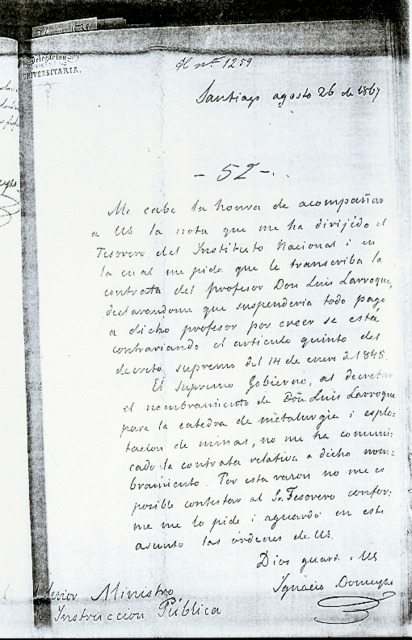 Delegacion
UNIVERSITARIA.
N.º 1259
Santiago agosto 26 de 1867
- 52 -
Me cabe la honra de acompañar
a US la nota que me ha dirijido el
Tesorero del Instituto Nacional i en
la cual me pide que le transcriba la
contrata del profesor Don Luis Larroque,
declarandome que suspenderia todo pago
a dicho profesor por creer se está
contrariando el articulo quinto del
decreto supremo del 14 de enero d 1848.
El Supremo Gobierno, al decretar
el nombramiento de Don Luis Larroque
para la catedra de metalurgia i esplo-
tacion de minas, no me ha comuni-
cado la contrata relativa a dicho nom-
bramiento. Por esta razon no me es
posible contestar al Sr. Tesorero confor-
me me lo pide i aguardo en este
asunto las órdenes de US.
Dios guar. a US
Ignacio Domeyko
Señor Ministro
Instruccion Pública